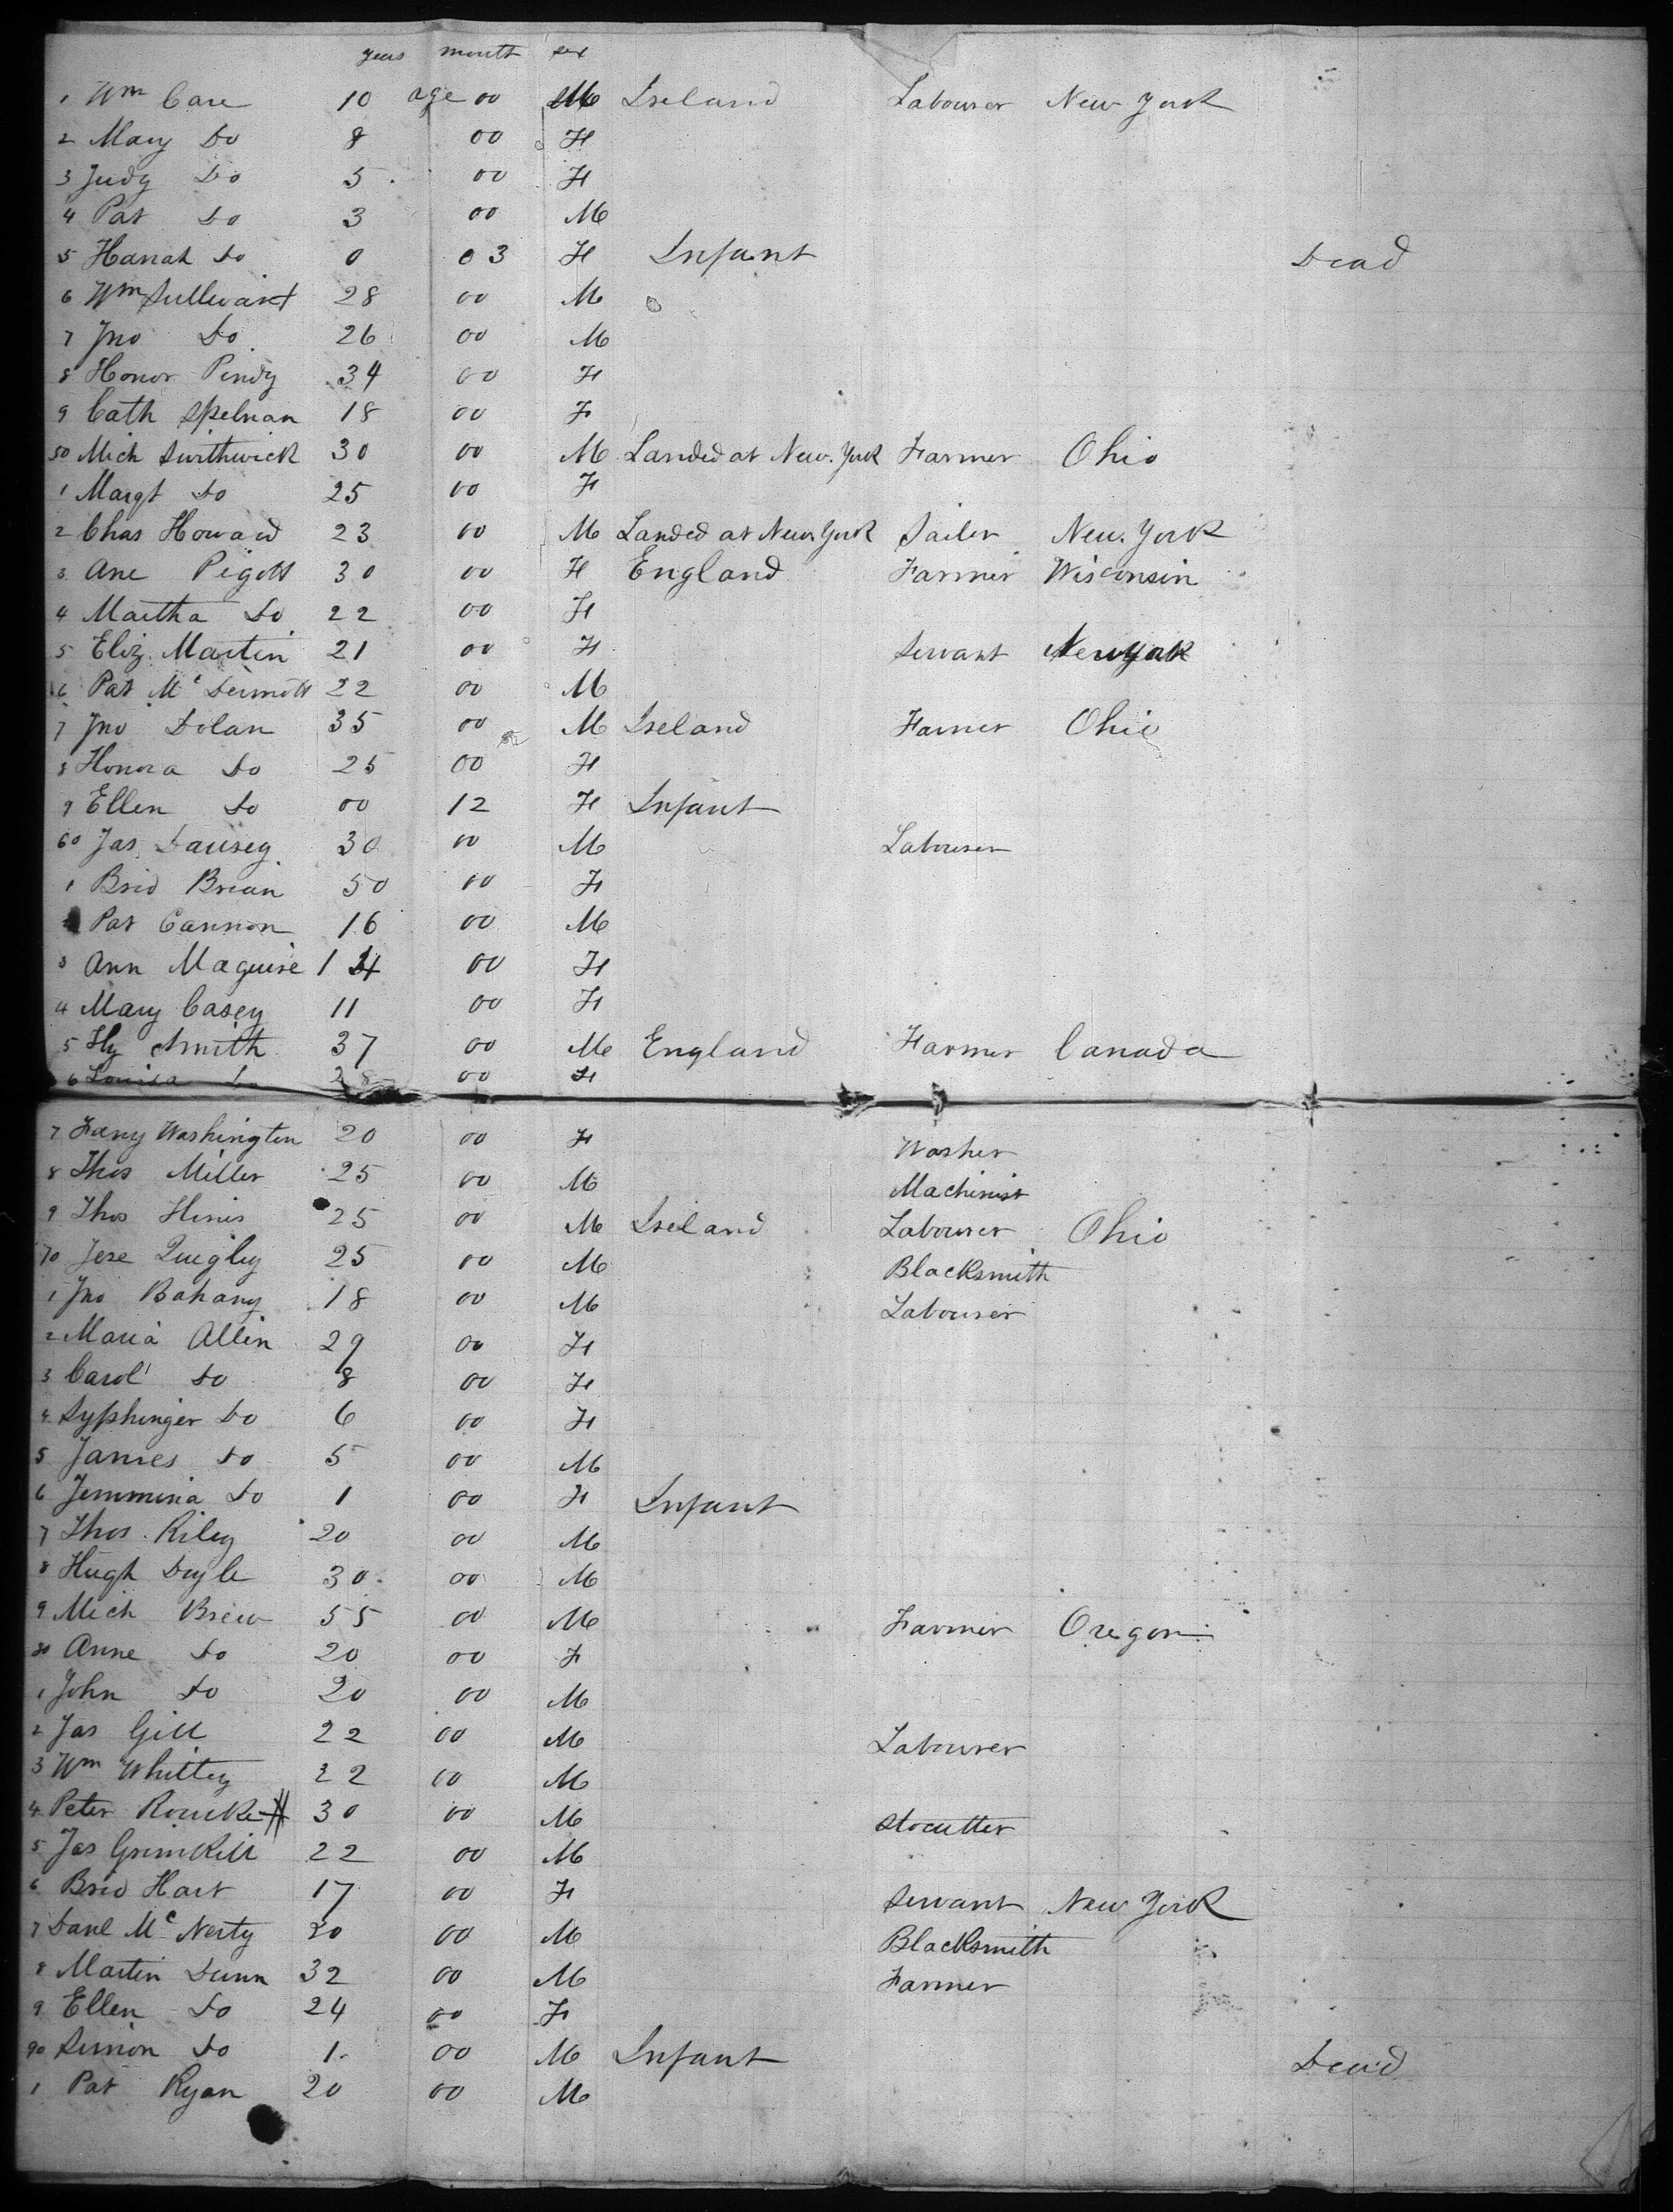 years month sex
1 Wm Care 10 age 00 M Ireland Labourer New York
2 Mary Do 8 00 F
3 Judy Do 5 00 F
4 Pat Do 3 00 M
5 Hanah Do 0 03 F Infant Dead
6 Wm Sullivant 28 00 M
7 Jno Do 26 00 M
8 Honor Pindy 34 00 F
9 Cath Spelman 18 00 F
50 Mich Smithwick 30 00 M Landed at New York Farmer Ohio
1 Margt Do 25 00 F
2 Chas Howard 23 00 M Landed at New York Sailer New York
3 Ane Pigott 30 00 F England Farmer Wisconsin
4 Martha Do 22 00 F
5 Eliz Martin 21 00 F Servant New York
6 Pat Mc Dermott 22 00 M
7 Jno Dolan 35 00 M Ireland Farmer Ohio
8 Honora Do 25 00 F
9 Ellen Do 00 12 F Infant
60 Jas 30 00 M Labourer
1 Brid Brian 50 00 F
Pat Cannon 16 00 M
3 Ann Maguire 14 00 F
4 Mary Casey 11 00 F
5 Hy Smith 37 00 M England Farmer Canada
6 Louisa Do 28 00 F
7 Fany Washington 20 00 F Washer
8 Thos Miller 25 00 M Machinist
9 Thos Hinis 25 00 M Ireland Labourer Ohio
70 Jere Quigley 25 00 M Blacksmith
1 Jno Bahany 18 00 M Labourer
2 Maria Allin 29 00 F
3 Carol Do 8 00 F
4 Syphinger Do 6 00 F
5 James Do 5 00 M
6 Jemmina Do 1 00 F Infant
7 Thos Riley 20 00 M
8 Hugh Doyle 30 00 M
9 Mich Brew 55 00 M Farmer Oregon
80 Anne Do 20 00 F
1 John Do 20 00 M
2 Jas Gill 22 00 M Labourer
3 Wm Whittey 22 00 M
4 Peter Rourke 30 00 M Stocutter
5 Jas Grimkill 22 00 M
6 Brid Hart 17 00 F Servant New York
7 Danl Mc Nerty 20 00 M Blacksmith
8 Martin Dunn 32 00 M Farmer
9 Ellen Do 24 00 F
90 Simon Do 1 00 M Infant Dead
1 Pat Ryan 20 00 M